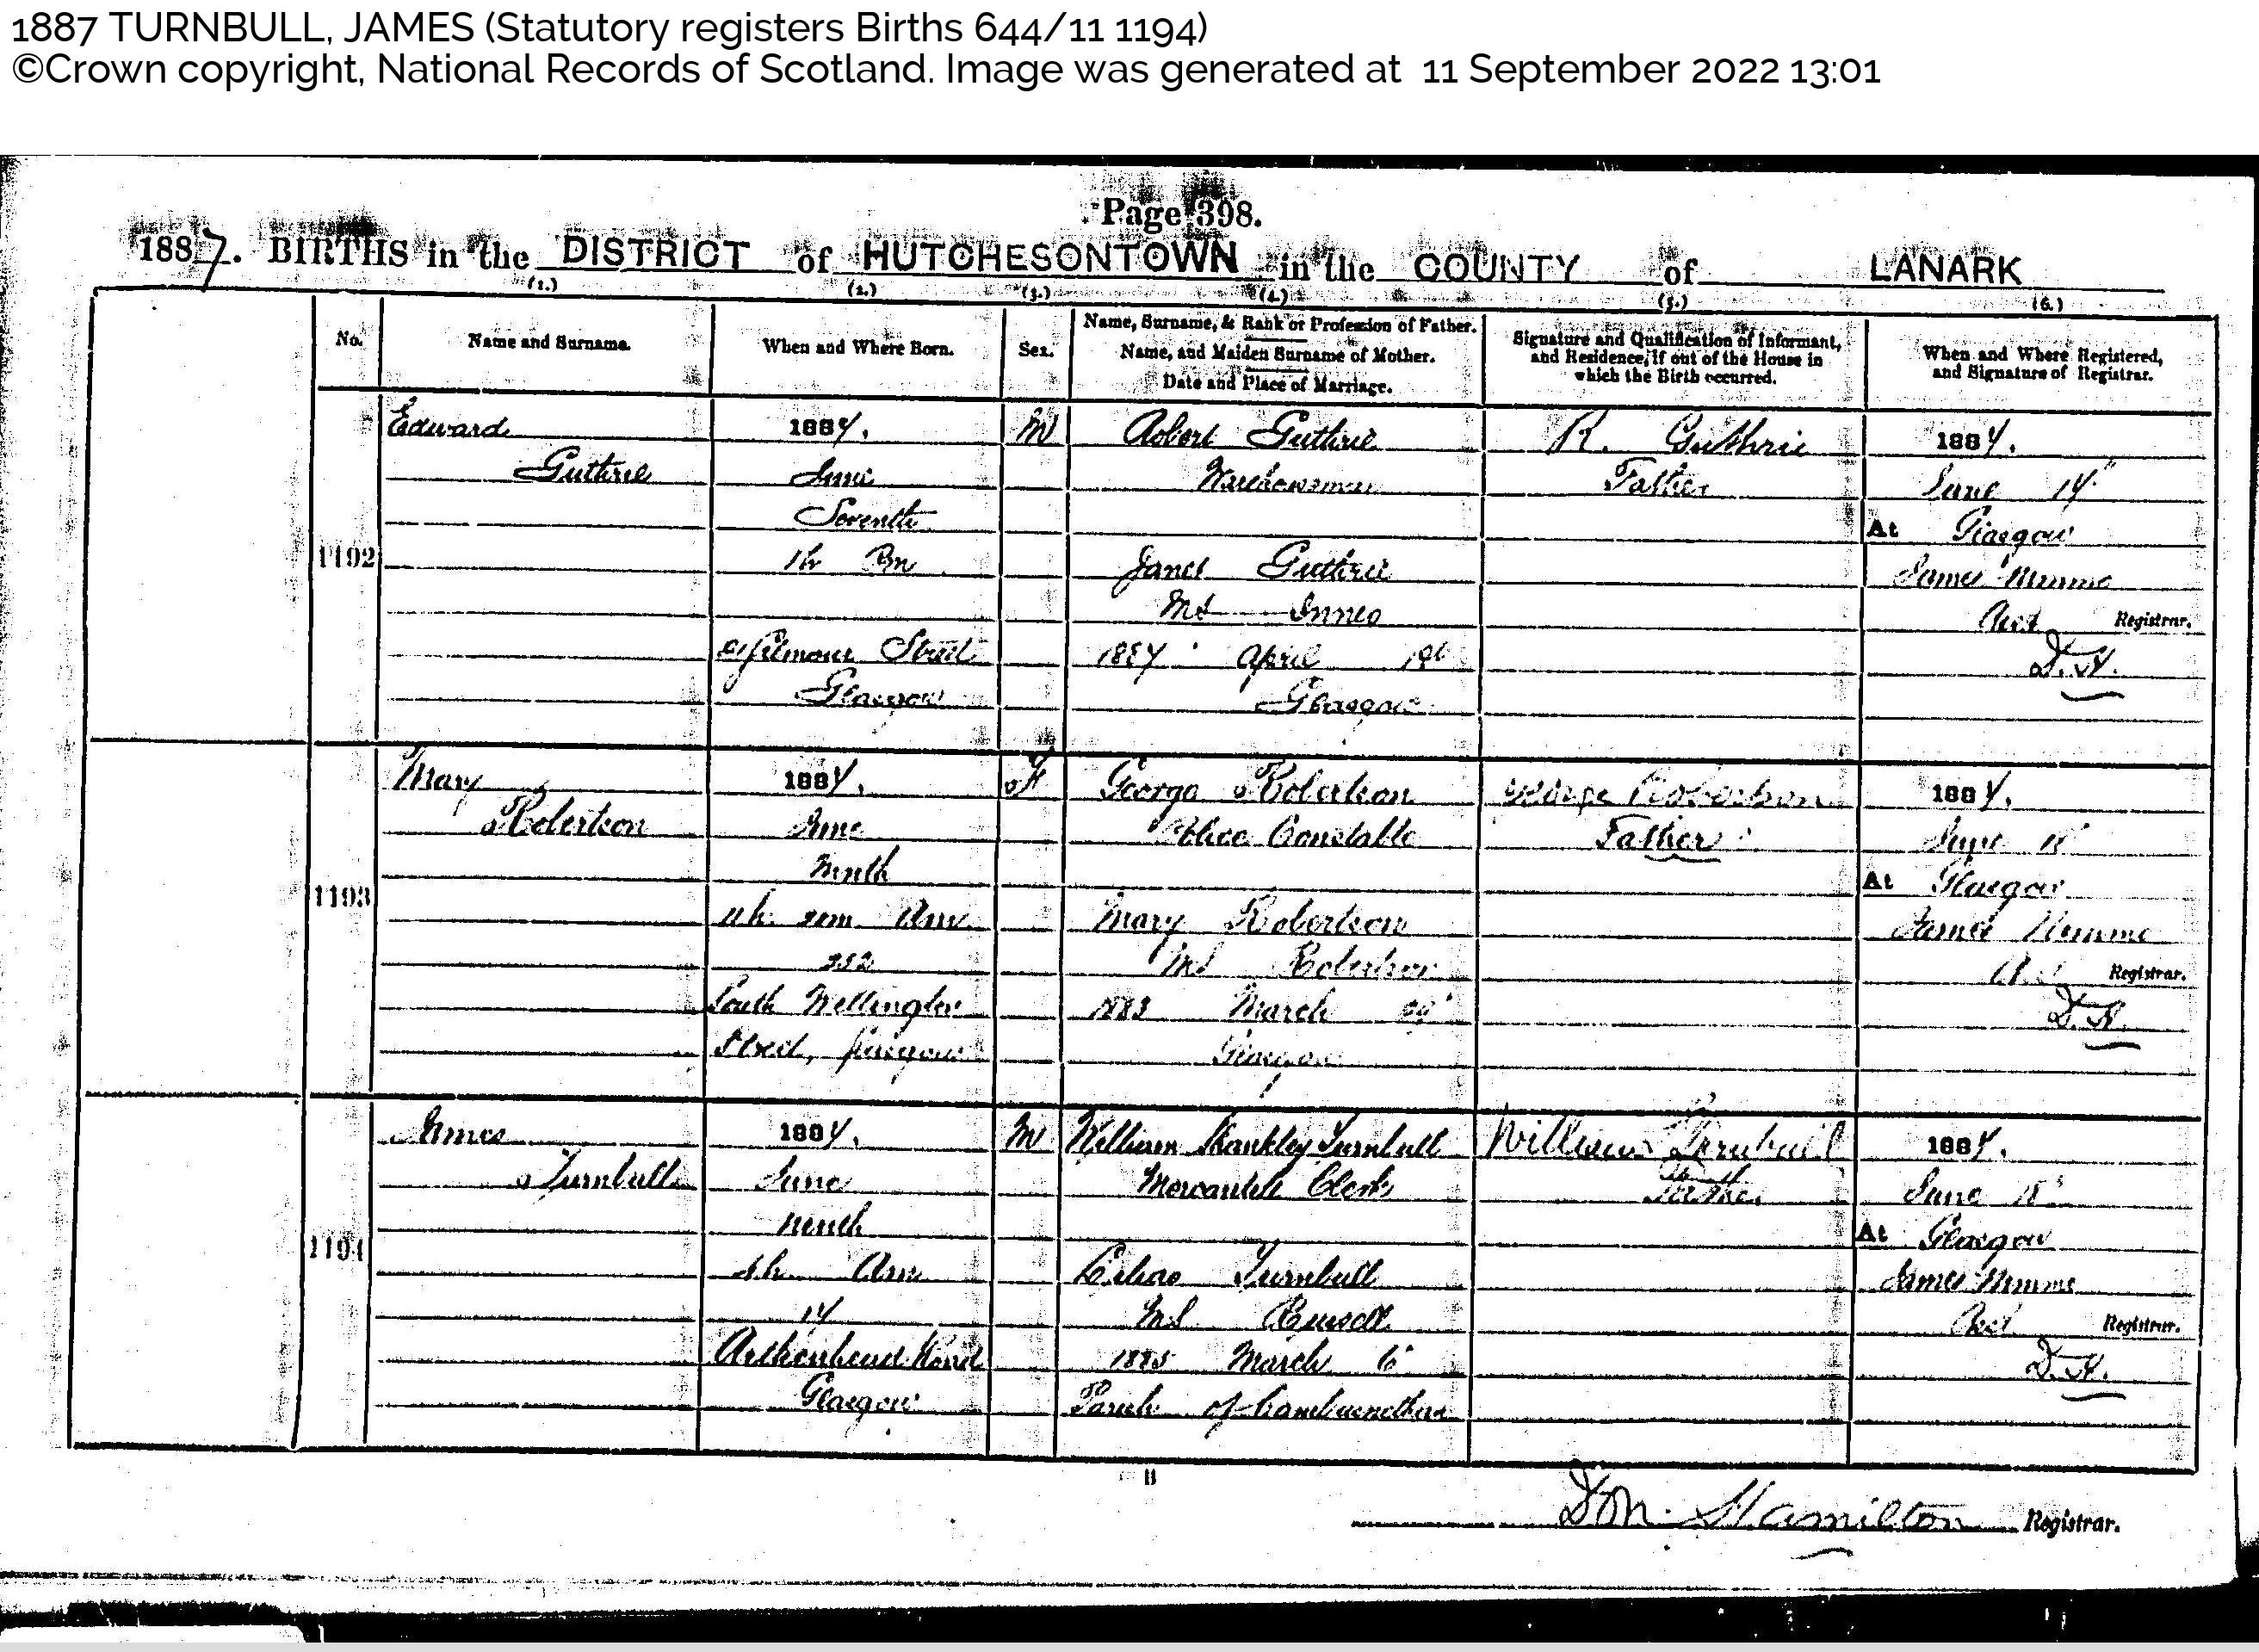 1887 TURNBULL, JAMES (Statutory registers Births 644/11 1194)
©Crown copyright, National Records of Scotland. Image was generated at 11 September 2022 13:01
Page 398.
1887. BIRTHS in the DISTRICT of HUTCHESONTOWN in the COUNTY of LANARK
(1.) (2.) (3.) (4.) (5.) (6.)
No.
Name and Surname.
When and Where Born.
Sex.
Name, Surname, & Rank or Profession of Father.
Name, and Maiden Surname of Mother.
Date and Place of Marriage.
Signature and Qualification of Informant,
and Residence, if out of the House in
which the Birth occurred.
When and Where Registered,
and Signature of Registrar.
1192
Edward
Guthrie
1887.
June
Seventh
1h Pm
Gilmour Street
Glasgow
M
Robert Guthrie
Warehouseman
Janet Guthrie
MS Innes
April
Glasgow
R. Guthrie
Father
1887.
June 14"
At Glasgow
James Nimmo
Asst Registrar.
D.H.
1193
Mary
Robertson
1887.
June
Ninth
Am
252
South Wellington
Street, Glasgow
F
George Robertson
Police Constable
Mary Robertson
MS Robertson
1883 March
Glasgow
George Robertson
Father
1887.
June
At Glasgow
James Nimmo
Registrar.
D.H.
1194
James
Turnbull
1887.
June
Ninth
Am
17
Aikenhead Road
Glasgow
M
William Shankley Turnbull
Mercantile Clerk
Turnbull
MS Russell
1885 March 6"
Parish of Cambusnethan
William Turnbull
Father
1887.
June
At Glasgow
James Nimmo
Asst Registrar.
D.H.
Hamilton Registrar.